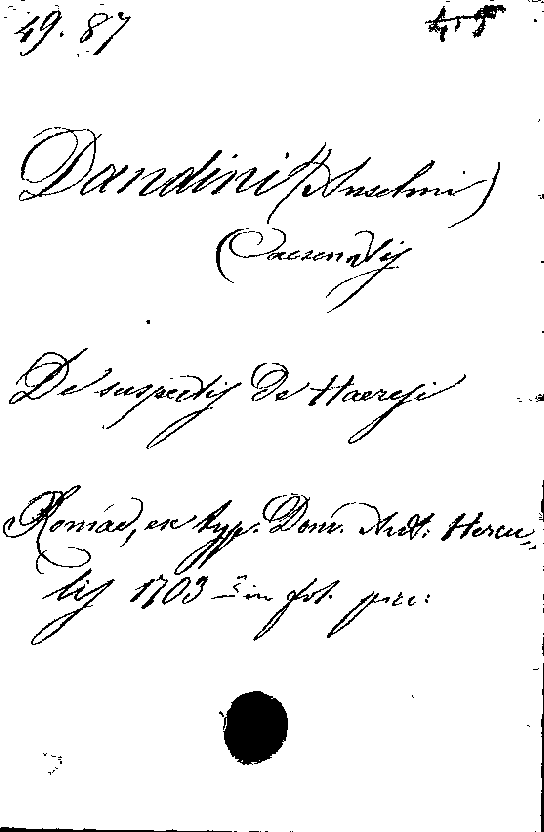 49. 87
Dandini (Anselmi)
(Caesenatis
De suspectis de Haeresi
Romae, ex typ. Dom. Ant: Hercu„
lis 1703 in fol. picc: